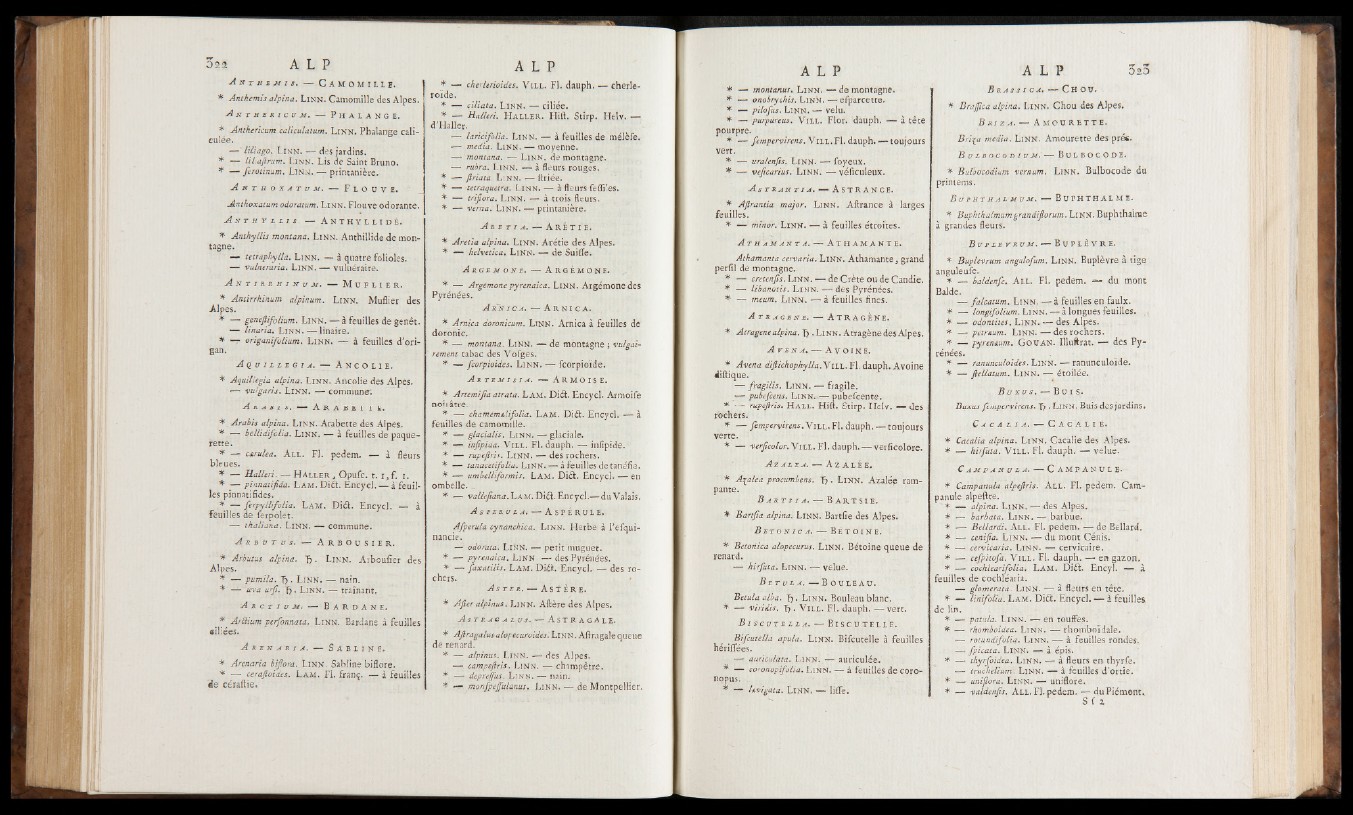 322 ALP
ANTHEMIS. — CAMOMILLE.
* Anthemis alpina. LINN. Camomille des Alpes.
ANTHERICUM. — PHALANGE.
* Anthericum caliculatum. LINN. Phalange cali-
culée.
— liliago. LINN. — des jardins.
* — liliastrum. LINN. Lis de Saint Bruno.
* — serotinum. LINN. — printanière.
ANTHOXATUM. — FLOUVE.
Anthoxatum odoratum. LINN. Flouve odorante.
ANTHYLLIS — ANTHYLLIDE.
* Anthyllis montana. LINN. Anthillide de mon-
tagne.
— tetraphylla. LINN. — à quatre folioles.
— vulneraria. LINN. — vulnéraire.
ANTIRRHINUM. — MUFLIER.
* Antirrhinum alpinum. LINN. Muflier des
Alpes.
* — genestifolium. LINN. — à feuilles de genêt.
— linaria. LINN. — linaire.
* — origanifolium. LINN. — à feuilles d'ori-
gan.
AQUILLEGIA. — ANCOLIE.
* Aquillegia alpina. LINN. Ancolie des Alpes.
— vulgaris. LINN. — commune.
ARABIS. — ARABETTE.
* Arabis alpina. LINN. Arabette des Alpes.
* — bellidifolia. LINN. — à feuilles de paque-
rette.
* — cærulea. ALL. Fl. pedem. — à fleurs
bleues.
* — Halleri. — HALLER, Opusc. t. 1, f. 1.
* — pinnatifida. LAM. Dict. Encycl. — à feuil-
les pinnatifides.
* — serpyllifolia. LAM. Dict. Encycl. — à
feuilles de serpolet.
— thaliana. LINN. — commune.
ARBUTUS. — ARBOUSIER.
* Arbutus alpina. ♄. LINN. Arbousier des
Alpes.
* — pumila. ♄. LINN. — nain.
* — uva ursi. ♄. LINN. — traînant.
ARCTIUM. — BARDANE.
* Arctium personnata. LINN. Bardane à feuilles
aillées.
ARENARIA. — SABLINE.
* Arenaria biflora. LINN. Sabline biflore.
* — cerastoides. LAM. Fl. franç. — à feuilles
de céraiste.
ALP
* — cherlerioides. VILL. Fl. dauph. — cherle-
roïde.
* — ciliata. LINN. — ciliée.
* — Halleri. HALLER. Hist. Stirp. Helv. —
d'Haller.
— laricifolia. LINN. — à feuilles de mélèse.
— media. LINN. — moyenne.
— montana. — LINN. de montagne.
— rubra. LINN. — à fleurs rouges.
* — striata. LINN. — striée.
* — tetraquetra. LINN. — à fleurs sessiles.
* — triflora. LINN. — à trois fleurs.
* — verna. LINN. — printanière.
ARETIA. — ARÉTIE.
* Aretia alpina. LINN. Arétie des Alpes.
* — helvetica. LINN. — de Suisse.
ARGEMONE. — ARGÉMONE.
* — Argemone pyrenaica. LINN. Argémone des
Pyrénées.
ARNICA. — ARNICA.
* Arnica doronicum. LINN. Arnica à feuilles de
doronic.
* — montana. LINN. — de montagne ; vulgai-
rement tabac des Vosges.
* — scorpioides. LINN. — scorpioïde.
ARTEMISIA. — ARMOISE.
* Artemisia atrata. LAM. Dict. Encycl. Armoise
noirâtre.
* — chamemelifolia. LAM. Dict. Encycl. — à
feuilles de camomille.
* — glacialis. LINN. — glaciale.
* — insipida. VILL. Fl. dauph. — insipide.
* — rupestris. LINN. — des rochers.
* — tanacetifolia. LINN. — à feuilles de tanésie.
* — umbelliformis. LAM. Dict. Encycl. — en
ombelle.
* — vallesiana. LAM. Dict. Encycl. — du Valais.
ASPERULA. — ASPÉRULE.
Asperula cynanchica. LINN. Herbe à l'esqui-
nancie.
— odorata. LINN. — petit muguet.
* — pyrenaica. LINN. — des Pyrénées.
* — saxatilis. LAM. Dict. Encycl. — des ro-
chers.
ASTER. — ASTÈRE.
* Aster alpinus. LINN. Astère des Alpes.
ASTRAGALUS. — ASTRAGALE.
* Astragalus alopecuroides. LINN. Astragale queue
de renard.
* — alpinus. LINN. — des Alpes.
— campestris. LINN. — champêtre.
* — depressus. LINN. — nain.
* — monspessulanus. LINN. — de Montpellier.
ALP
* — montanus. LINN. — de montagne.
* — onobrychis. LINN. — esparcette.
* — pilosus. LINN. — velu.
* — purpureus. VILL. Flor. dauph. — à tête
pourpre.
* — sempervirens. VILL. Fl. dauph. — toujours
vert.
* — uralensis. LINN. — soyeux.
* — vesicarius. LINN. — vésiculeux.
ASTRANTIA. — ASTRANCE.
* Astrantia major. LINN. Astrance à larges
feuilles.
* — minor. LINN. — à feuilles étroites.
ATHAMANTA. — ATHAMANTE.
Athamanta cervaria. LINN. Athamante, grand
persil de montagne.
* — cretensis. LINN. — de Crète ou de Candie.
* — libanotis. LINN. — des Pyrénées.
* — meum. LINN. — à feuilles fines.
ATRAGENE. — ATRAGÈNE.
* Atragene alpina. ♄. LINN. Atragène des Alpes.
AVENA. — AVOINE.
* Avena distichophylla. VILL. Fl. dauph. Avoine
distique.
— fragilis. LINN. — fragile.
— pubescens. LINN. — pubescente.
* — rupestris. HALL. Hist. Stirp. Helv. — des
rochers.
* — sempervirens. VILL. Fl. dauph. — toujours
verte.
* — versicolor. VILL. Fl. dauph. — versicolore.
AZALEA. — AZALÉE.
* Azalea procumbens. ♄. LINN. Azalée ram-
pante.
BARTSIA. — BARTSIE.
* Bartsia alpina. LINN. Bartsie des Alpes.
BETONICA. — BETOINE.
* Betonica alopecurus. LINN. Bétoine queue de
renard.
— hirsuta. LINN. — velue.
BETULA. — BOULEAU.
Betula alba. ♄. LINN. Bouleau blanc.
* — viridis. ♄. VILL. Fl. dauph. — vert.
BISCUTELLA. — BISCUTELLE.
Biscutella apula. LINN. Biscutelle à feuilles
hérissées.
— auriculata. LINN. — auriculée.
* — coronopifolia. LINN. — à feuilles de coro-
nopus.
* — lævigata. LINN. — lisse.
ALP 323
BRASSICA. — CHOU.
* Brassica alpina. LINN. Chou des Alpes.
BRIZA. — AMOURETTE.
Briza media. LINN. Amourette des prés.
BULBOCODIUM. — BULBOCODE.
* Bulbocodium vernum. LINN. Bulbocode du
printems.
BUPHTHALMUM. — BUPHTHALME.
* Buphthalmum grandiflorum. LINN. Buphthalme
à grandes fleurs.
BUPLEVRUM. — BUPLÈVRE.
* Buplevrum angulosum. LINN. Buplèvre à tige
anguleuse.
* — baldense. ALL. Fl. pedem. — du mont
Balde.
— falcatum. LINN. — à feuilles en faulx.
* — longifolium. LINN. — à longues feuilles.
* — odontites. LINN. — des Alpes.
* — petræum. LINN. — des rochers.
* — pyrenæum. GOUAN. Illustrat. — des Py-
rénées.
* — ranunculoides. LINN. — ranunculoïde.
* — stellatum. LINN. — étoilée.
BUXUS. — BUIS.
Buxus sempervirens. ♄. LINN. Buis des jardins.
CACALIA. — CACALIE.
* Cacalia alpina. LINN. Cacalie des Alpes.
* — hirsuta. VILL. Fl. dauph. — velue.
CAMPANULA. — CAMPANULE.
* Campanula alpestris. ALL. Fl. pedem. Cam-
panule alpestre.
* — alpina. LINN. — des Alpes.
* — barbata. LINN. — barbue.
* — Bellardi. ALL. Fl. pedem. — de Bellard.
* — cenisia. LINN. — du mont Cénis.
* — cervicaria. LINN. — cervicaire.
* — cespitosa. VILL. Fl. dauph. — en gazon.
* — cochlearifolia. LAM. Dict. Encyl. — à
feuilles de cochléaria.
— glomerata. LINN. — à fleurs en tête.
* — linifolia. LAM. Dict. Encycl. — à feuilles
de lin.
* — patula. LINN. — en touffes.
* — rhomboidea. LINN. — rhomboïdale.
— rotundifolia. LINN. — à feuilles rondes.
— spicata. LINN. — à épis.
* — thyrsoidea. LINN. — à fleurs en thyrse.
— trachelium. LINN. — à feuilles d'ortie.
* — uniflora. LINN. — uniflore.
* — valdensis. ALL. Fl. pedem. — du Piémont.
Sf 2